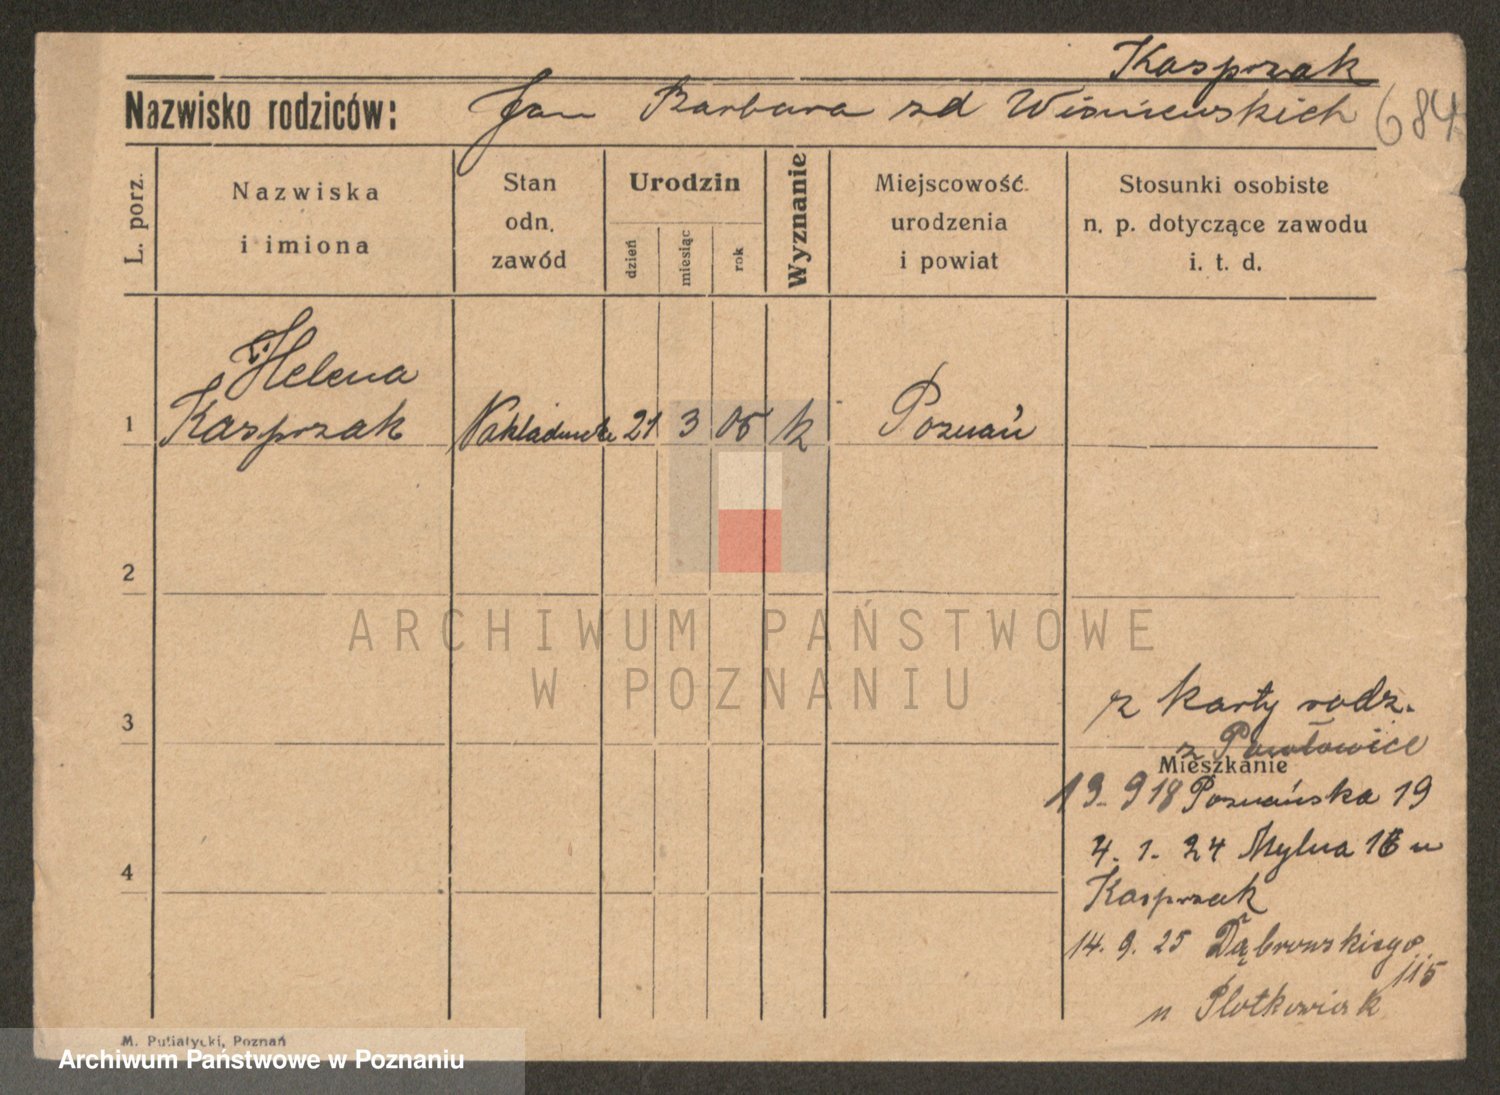 Kasprzak
Nazwisko rodziców: Jan Barbara zd Wiśniewskich 684
L. porz.
Nazwiska i imiona
Stan odn. zawód
Urodzin
dzień miesiąc rok
Wyznanie
Miejscowość urodzenia i powiat
Stosunki osobiste n. p. dotyczące zawodu i. t. d.
Helena
1 Kasprzak 21 3 05 k Poznań
2
ARCHIWUM PAŃSTWOWE
W POZNANIU
3
z karty rodz.
z Pawłowice
Mieszkanie
19-918 Poznańska 19
4
4. 1. 24 Mylna 16 u
Kasprzak
14. 9. 25 Dąbrowskiego
115
u Plotkowiak
M. Putiatycki, Poznań
Archiwum Państwowe w Poznaniu